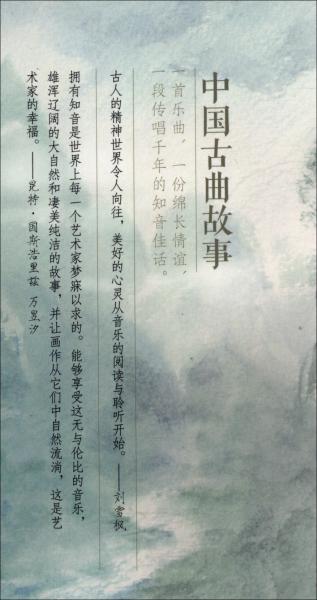 中国古曲故事
一首乐曲，一份绵长情谊，
一段传唱千年的知音佳话。
古人的精神世界令人向往，美好的心灵从音乐的阅读与聆听开始。——刘雪枫
拥有知音是世界上每一个艺术家梦寐以求的。能够享受这无与伦比的音乐，
雄浑辽阔的大自然和凄美纯洁的故事，并让画作从它们中自然流淌，这是艺
术家的幸福。——昆特·固斯浩里兹 万昱汐